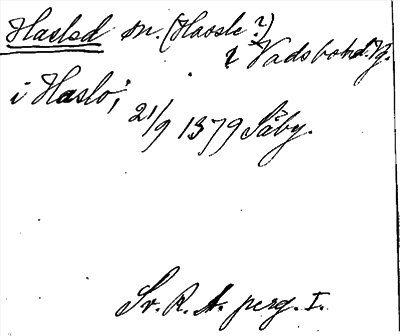 Haslad sn. (Hassle?)
? Vadsbohd. Vg.
i Haslö; 21/9 1379 Säby.
Sv. R. A. perg. I.